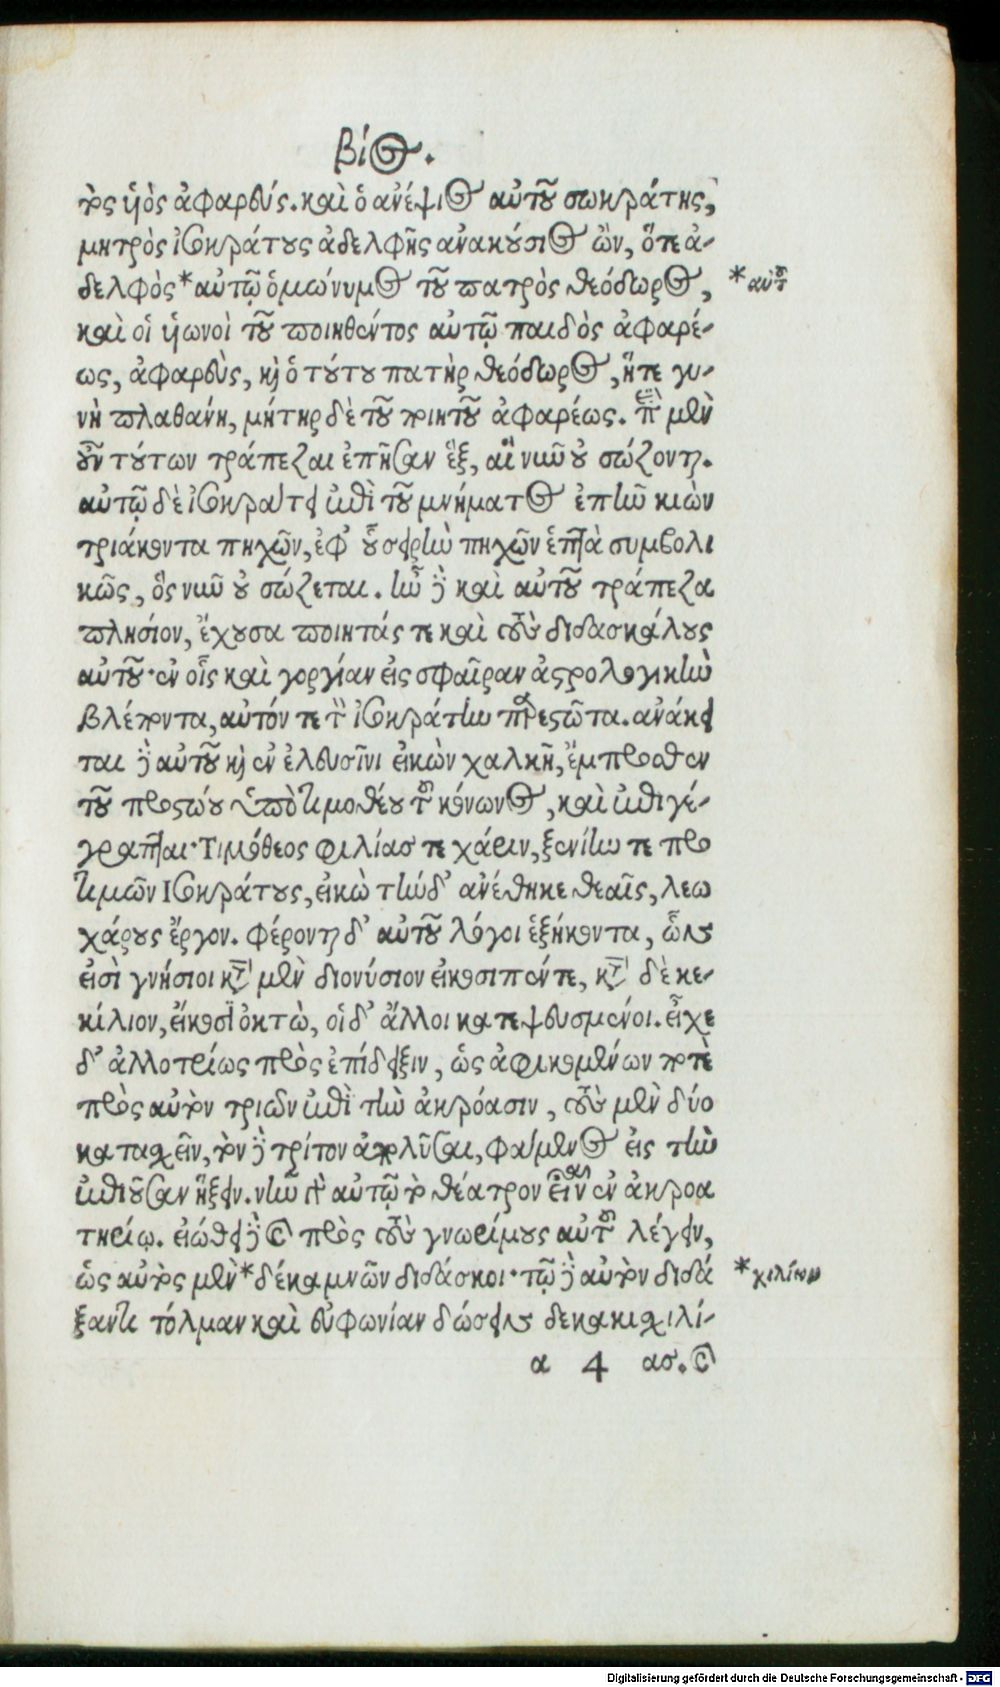 βίος.
τὸς ὑὸς ἀφαρεύς. καὶ ὁ ἀνέψιος αὐτοῦ σωκράτης,
μητρὸς ἰσοκράτους ἀδελφῆς ἀνακούσιος ὢν, ὅτε ἀ-
δελφὸς* αὐτῷ ὁμώνυμος τοῦ πατρὸς θεόδωρος,
*αὐτοῦ
καὶ οἱ ὑωνοὶ τοῦ ποιηθέντος αὐτῷ παιδὸς ἀφαρέ-
ως, ἀφαρεὺς, καὶ ὁ τούτου πατὴρ θεόδωρος, ἥτε γυ-
νὴ πλαθανὴ, μήτηρ δὲ τοῦ ποιητοῦ ἀφαρέως. ἐπὶ μὲν
οὖν τούτων τράπεζαι ἐπῆσαν ἓξ, αἳ νῦν οὐ σώζονται.
αὐτῷ δὲ ἰσοκράτει ἐπὶ τοῦ μνήματος ἐπῆν κιὼν
τριάκοντα πηχῶν, ἐφ' οὗ σειρὴν πηχῶν ἑπτὰ συμβολι
κῶς, ὃς νῦν οὐ σώζεται. ἦν δὲ καὶ αὐτοῦ τράπεζα
πλησίον, ἔχουσα ποιητάς τε καὶ τοὺς διδασκάλους
αὐτοῦ· ἐν οἷς καὶ γοργίαν εἰς σφαῖραν ἀστρολογικὴν
βλέποντα, αὐτόν τε τὸν ἰσοκράτην παρεστῶτα. ἀνάκει
ται δὲ αὐτοῦ καὶ ἐν ἐλευσῖνι εἰκὼν χαλκῆ, ἔμπροσθεν
τοῦ προστώου ὑπὸ τιμοθέου τοῦ κόνωνος, καὶ ἐπιγέ-
γραπται· Τιμόθεος φιλίας τε χάριν, ξενίην τε προ
τιμῶν Ἰσοκράτους, εἰκὼ τὴν δ' ἀνέθηκε θεαῖς, λεω
χάρους ἔργον. φέρονται δ' αὐτοῦ λόγοι ἑξήκοντα, ὧν
εἰσὶ γνήσιοι κατὰ μὲν διονύσιον εἰκοσιπέντε, κατὰ δὲ κε-
κίλιον, εἴκοσι ὀκτὼ, οἱ δ' ἄλλοι κατεψευσμένοι. εἶχε
δ' ἀλλοτρίως πρὸς ἐπίδειξιν, ὡς ἀφικομένων ποτὲ
πρὸς αὐτὸν τριῶν ἐπὶ τὴν ἀκρόασιν, τοὺς μὲν δύο
κατασχεῖν, τὸν δὲ τρίτον ἀπολῦσαι, φάμενος εἰς τὴν
ἐπιοῦσαν ἥξειν. νῦν γὰρ αὐτῷ τὸ θέατρον εἶναι ἐν ἀκροα
τηρίῳ. εἰώθει δὲ καὶ πρὸς τοὺς γνωρίμους αὐτοῦ λέγειν,
ὡς αὐτὸς μὲν* δέκα μνῶν διδάσκοι· τῷ δὲ αὐτὸν διδά
*χιλίων
ξαντι τόλμαν καὶ εὐφωνίαν δώσειν δεκακισχιλί-
α 4 ας. καὶ
Digitalisierung gefördert durch die Deutsche Forschungsgemeinschaft - DFG